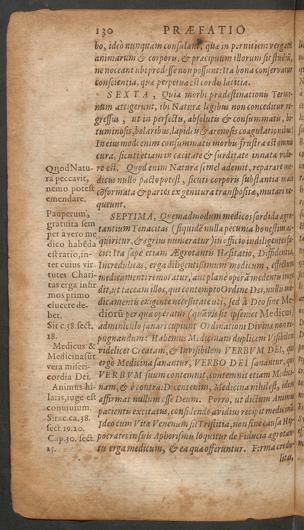 130 PRÆFATIO
bo, ideò nunquam consulant, quæ in perniciem vergant
animarum & corporū, & præcipuum illorum sit studiū,
ne noceant ubi prodesse non possunt: Ita bona conservatur
conscientia, quæ perpetua est cordis lætitia.
SEXTA, Quia morbi prædestinationis Termi-
num attigerunt, ibi Naturæ legibus non conceditur
gressus, ut in perfectis, absolutis & consummatis,
tuminosis, balaribus, lapidib9 & arenosis coagulationibus:
In eius modi enim consummatis morbis frustra est omnis
cura, sicut etiam in cæcitate & surditate innata
re est. Quod enim Natura semel ademit, reparare
dicus nullo pacto potest, sicuti corporis substantia
cōformata & partes ex genitura transpositæ, mutari
queunt.
SEPTIMA, Quemadmodum medicos sordida
rantium Tenacitas (siquidē nulla pecunia honestius
quiritur, & ægrius numeratur) in officio indiligentes
cit: Ita sæpè etiam Ægrotantis Hæsitatio, Diffidentia,
Incredulitas, erga diligentissimum medicum, effectum
medicamenti remoratur, aut planè opera medentis
dit, ut taceam illos, qui contempto Ordine Dei, nullo
dicamentis exigente necessitate uti, sed à Deo sine
diorū per quæ operatur (quāvis sit ipsemet Medicus,
adminiculo sanari cupiunt Ordinationi Divinæ
pugnandum: Habemus Medicinam duplicem Visibilem
videlicet Creatam, & Invisibilem VERBUM DEI, quod
ergò Medicina sanantur, VERBO DEI sanantur, qui
VERBUM suum contemnit, contemnit etiam
nam, & è contra: Dicentem, Medicina nihil est, idem
affirmat nullum esse Deum. Porro, ut dictum Animus
patientis excitatus, considendo avidius recipit
Ideo cum Vitæ Venenum sit Tristitia, non sine causa
pocrates in suis Aphorismis loquitur de Fiducia
tis erga medicum, & ea quæ offeruntur. Firma
litas,
Quod Natu-
ra peccavit,
nemo potest
emendare.
Pauperum,
gratuita sem
per a vero me
dico habēda
est ratio, in-
ter cuius vir-
tutes Chari-
tas erga infir
mos primo
elucere de-
bet.
Sir. c. 38. sect.
18.
Medicus &
Medicina sūt
vera miseri-
cordia Dei.
Animus hi-
laris, iuge est
convivium.
Sirac. ca. 38.
sect. 19. 20.
Cap. 30. sect.
25.